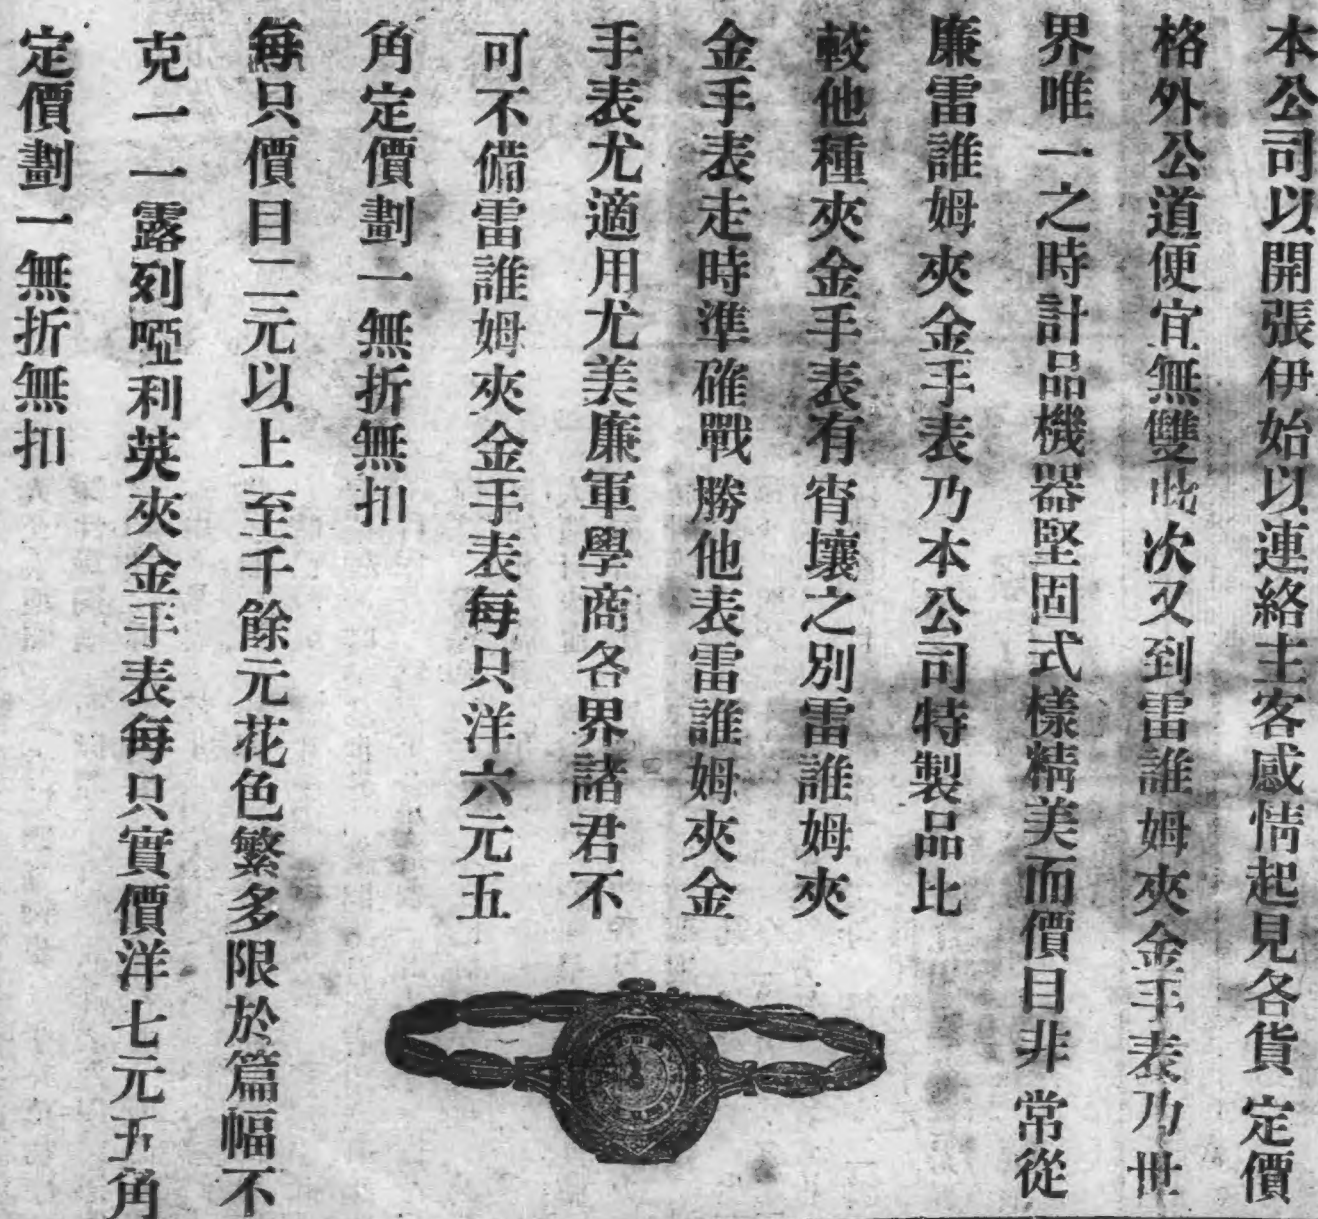 本公司以開張伊始以連絡主客感情起見各貨定價
格外公道便宜無雙此次又到雷誰姆夾金手表乃世
界唯一之時計品機器堅固式樣精美而價目非常從
廉雷誰姆夾金手表乃本公司特製品比
較他種夾金手表有宵壤之別雷誰姆夾
金手表走時準確戰勝他表雷誰姆夾金
手表尤適用尤美廉軍學商各界諸君不
可不備雷誰姆夾金手表每只洋六元五
角定價劃一無折無扣
每只價目二元以上至千餘元花色繁多限於篇幅不
克一一露列啞利英夾金手表每只實價洋七元五角
定價劃一無折無扣